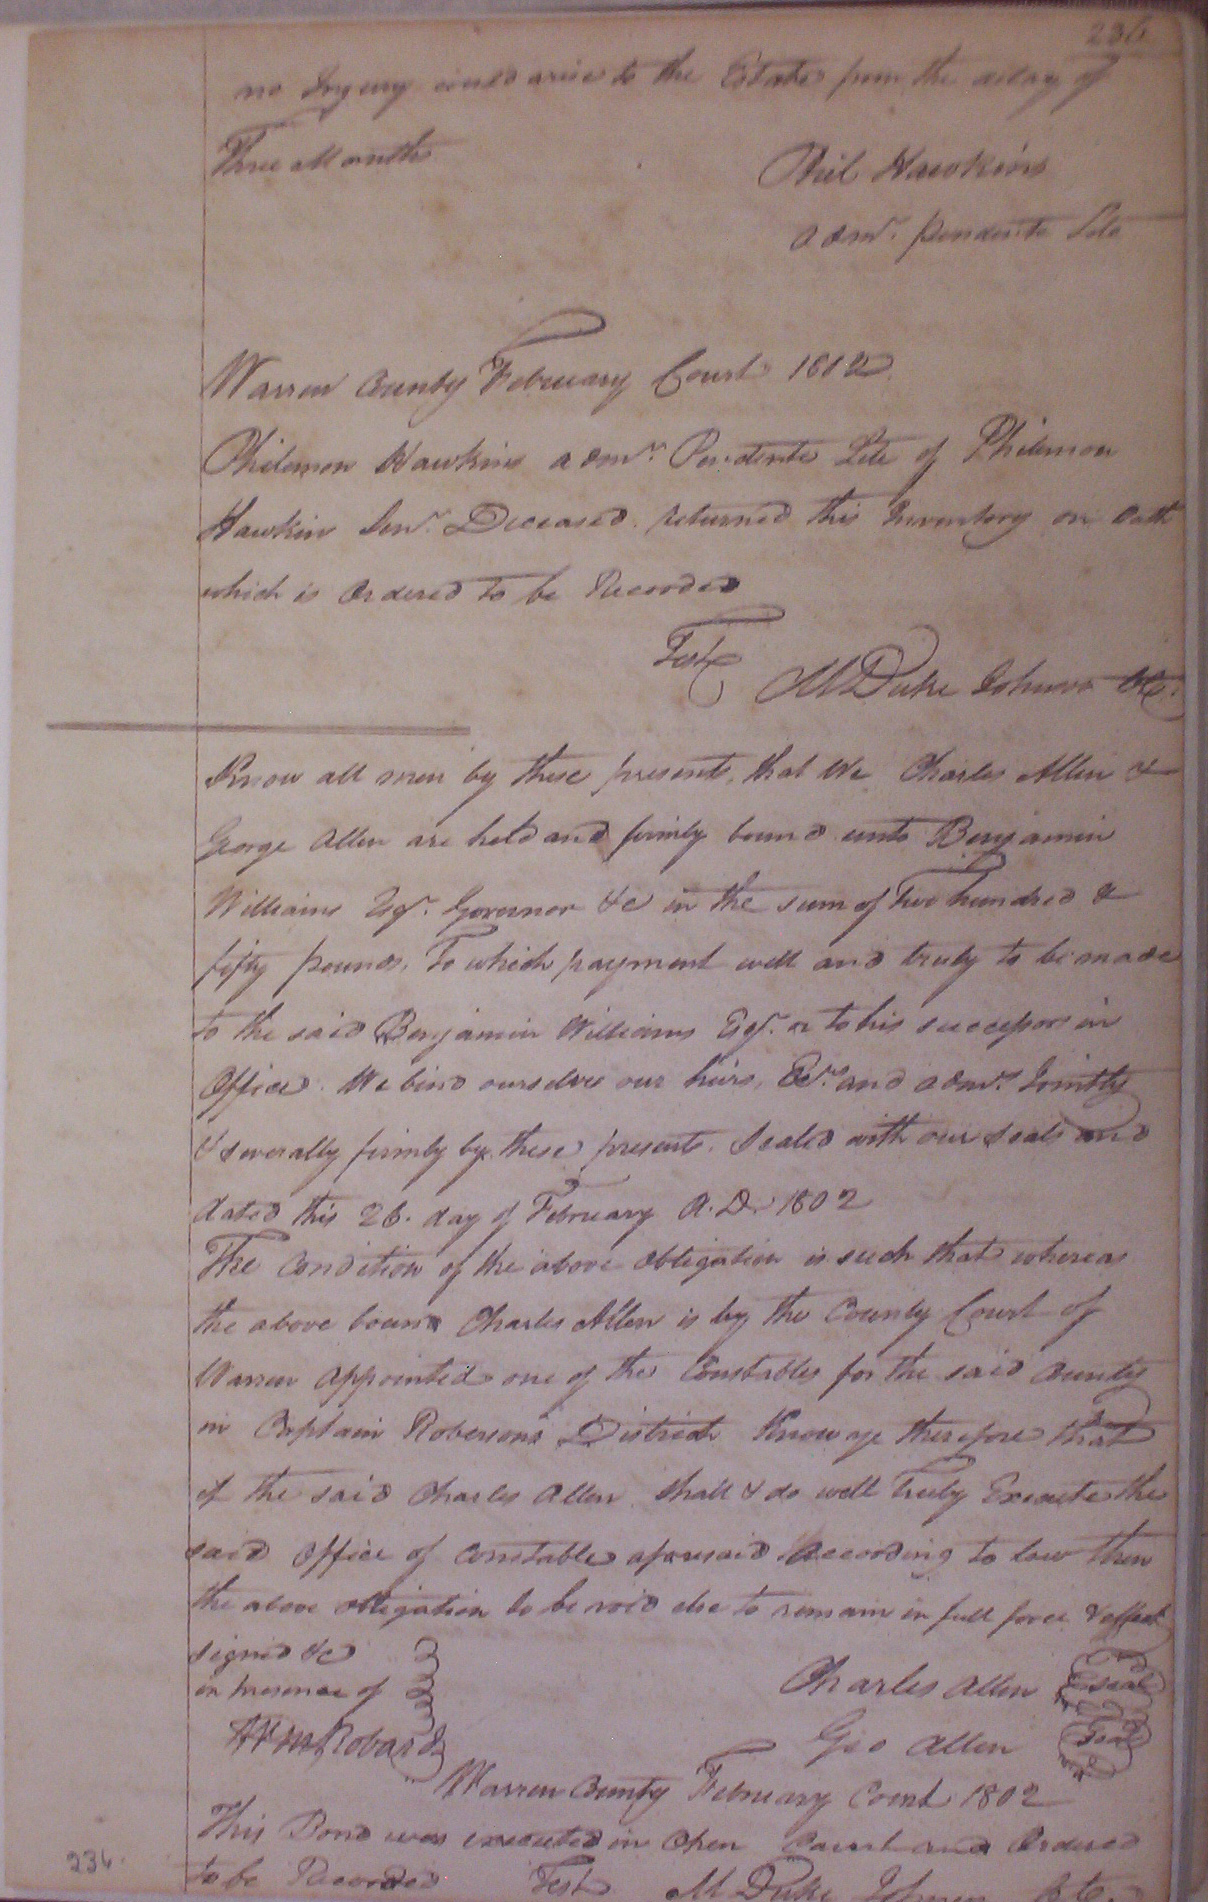 236
no Injury could arise to the Estate from the delay of
Three Months
Phil Hawkins
admr. pendente Lite
Warren County February Court 1802
Philemon Hawkins admr. Pendente Lite of Philemon
Hawkin Senr. Deceased returned this Inventory on Oath
which is Ordered to be Recorded
Test
M Duke Johnson
Know all men by these presents, that We Charles Allen &
George Allen are held and firmly bound unto Benjamin
Williams Esqr. Governor &c in the sum of Two hundred &
fifty pounds, To which payment well and truly to be made
to the said Benjamin Williams Esqr. or to his successors in
Office. We bind ourselves our heirs, Exrs. and admrs. Jointly
& severally firmly by these presents. Sealed with our Seals and
dated this 26. day of February A.D. 1802
The Condition of the above obligation is such that whereas
the above bound Charles Allen is by the County Court of
Warren appointed one of the Constables for the said County
in Captain Robersons District Know ye therefore that
if the said Charles Allen shall & do well Truly Execute the
said office of Constable aforesaid According to law then
the above obligation to be void else to remain in full force & effect
signed &c
in presence of
Charles Allen Seal
Wm Robards
Geo Allen Seal
Warren County February Court 1802
This Bond was executed in Open Court and Ordered
to be Recorded Test M Duke Johnson
234.